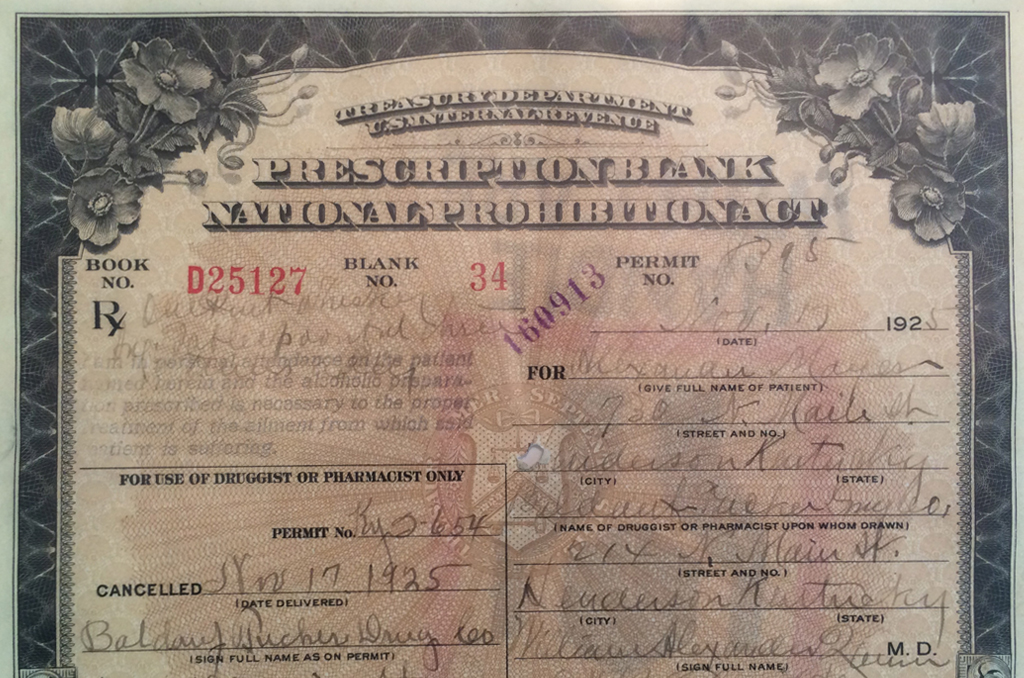 TREASURY DEPARTMENT
U.S. INTERNAL REVENUE
PRESCRIPTION BLANK
NATIONAL PROHIBITION ACT
BOOK NO. D25127 BLANK NO. 34 PERMIT NO.
160913
Rx
Whiskey
Nov. 1925
(DATE)
I am in personal attendance on the patient
named herein and the alcoholic prepara-
tion prescribed is necessary to the proper
treatment of the ailment from which said
patient is suffering.
FOR
(GIVE FULL NAME OF PATIENT)
St
(STREET AND NO.)
Henderson Kentucky
(CITY) (STATE)
Co.
(NAME OF DRUGGIST OR PHARMACIST UPON WHOM DRAWN)
214 N. Main St.
(STREET AND NO.)
Henderson Kentucky
(CITY) (STATE)
William Alexander M. D.
(SIGN FULL NAME)
FOR USE OF DRUGGIST OR PHARMACIST ONLY
PERMIT No. Ky 2-654
CANCELLED Nov 17 1925
(DATE DELIVERED)
Drug Co
(SIGN FULL NAME AS ON PERMIT)